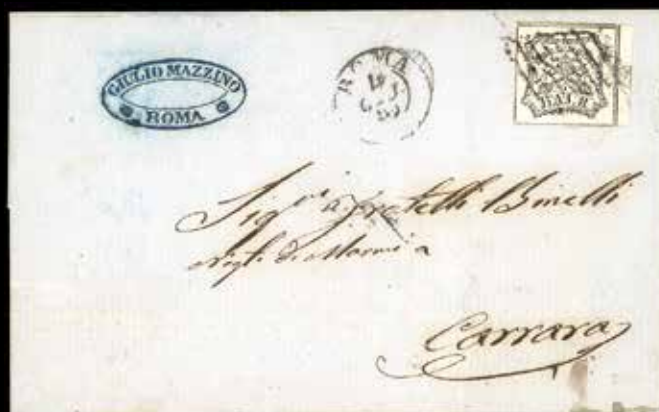 GIULIO MAZZINO
ROMA
ROMA
BAJ 8
Sig.ri fratelli Binelli
Negti di Marmi a
Carrara